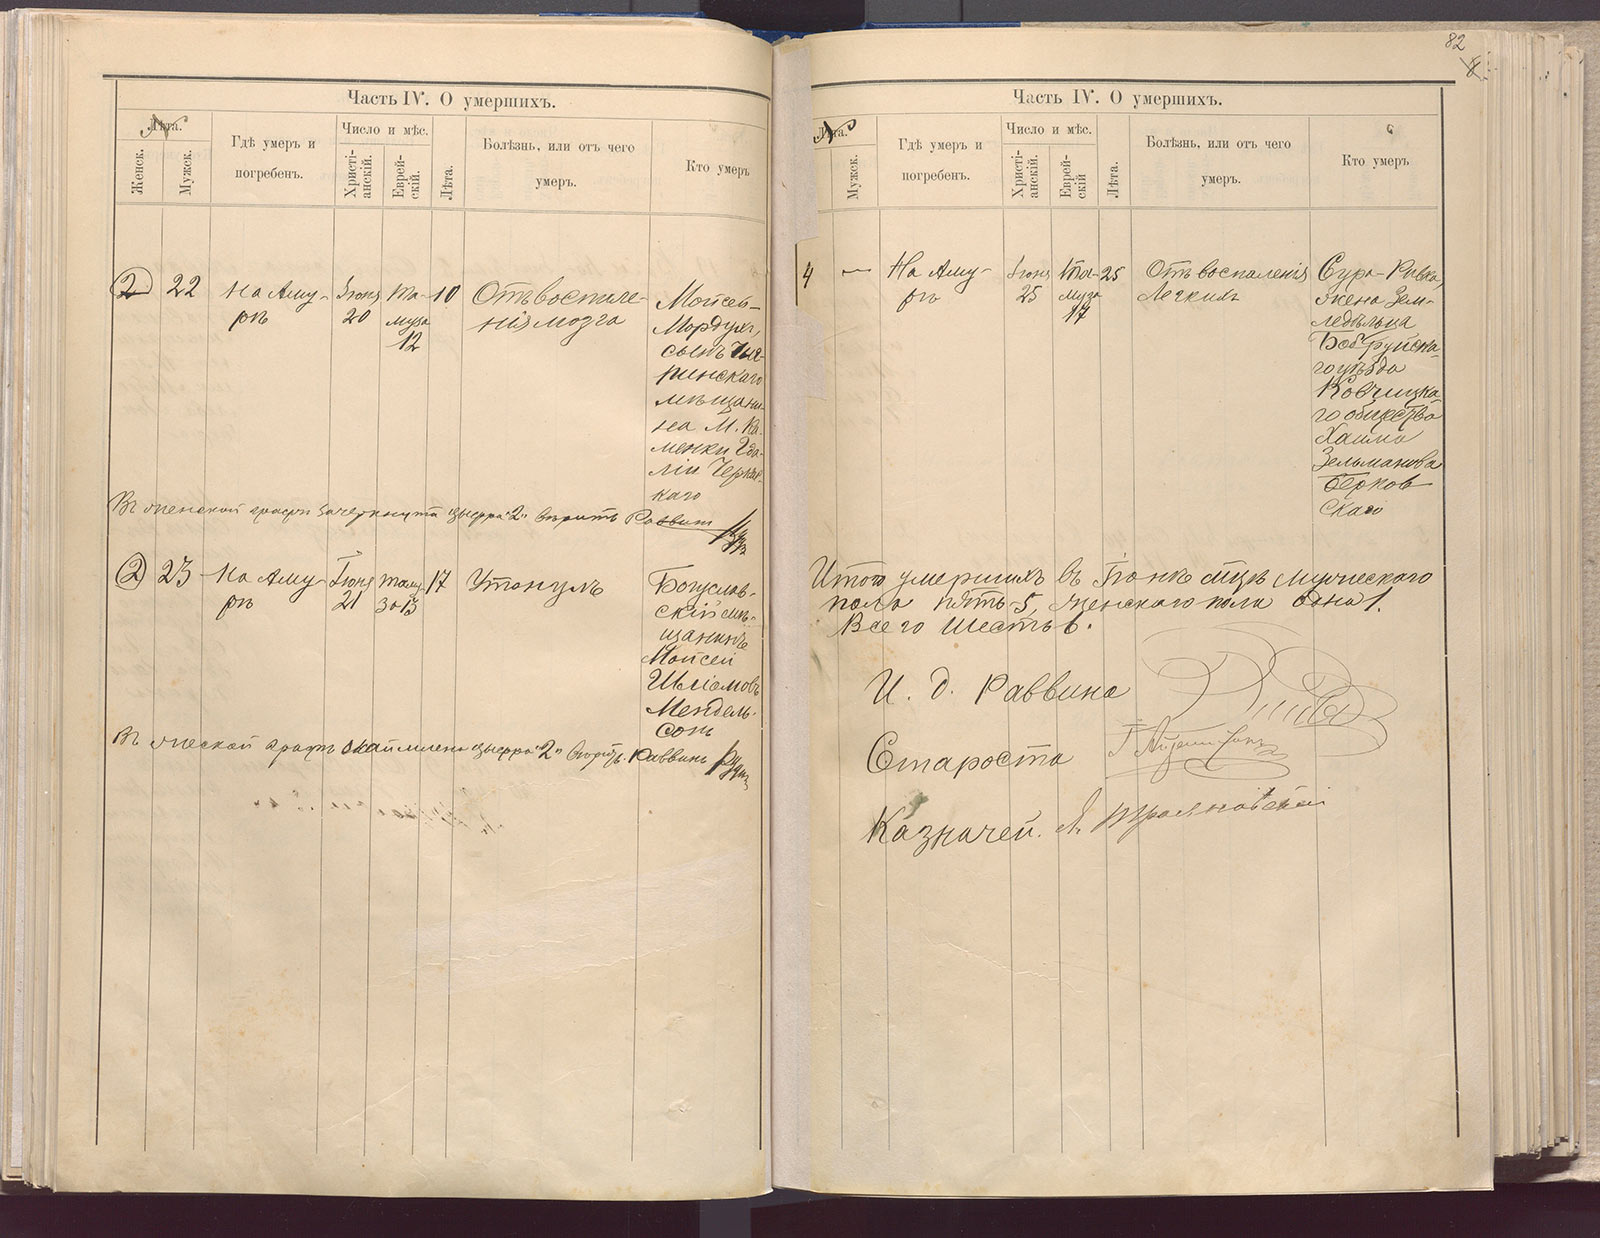 Часть IV. О умершихъ.
Лѣта.
№
Женск.
Мужск.
Гдѣ умеръ и
погребенъ.
Число и мѣс.
Христі-
анскій.
Еврей-
скій.
Лѣта.
Болѣзнь, или отъ чего
умеръ.
Кто умеръ
2
22
На Аму-
рѣ
Іюня
20
Та-
муза
12
10
Отъ воспале-
нія мозга
Мойсей-
Мордухъ,
сынъ
ринскаго
мѣщани-
на М. Ка-
менки Гда-
ліи Чернов-
каго
Въ женской графѣ зачеркнута цыфра "2" вѣрить Раввин
2
23
На Аму-
рѣ
Іюня
21
Таму-
за 13
17
Утонулъ
Богуслав-
скій мѣ-
щанинъ
Мойсей
Шліомовъ
Мендель-
сонъ
Въ женской графѣ окаймлена цыфра "2" вѣрить. Раввинъ
82
Часть IV. О умершихъ.
Лѣта.
№
Мужск.
Гдѣ умеръ и
погребенъ.
Число и мѣс.
Христі-
анскій.
Еврей-
скій
Лѣта.
Болѣзнь, или отъ чего
умеръ.
Кто умеръ
4
—
На Аму-
рѣ
Іюня
25
Та-
муза
17
25
Отъ воспаленія
Легкихъ
Сура-Ривка,
жена Зем-
ледѣльца
Бобруйска-
го уѣзда
Ковчицка-
го общества
Хаима
Зельманова
Берков-
скаго
Итого умершихъ въ Іюнѣ мцѣ мужескаго
пола пять-5, женскаго пола одна 1.
Всего шесть 6.
И. д. Раввина
Староста
Казначей. Я. Трояновскій